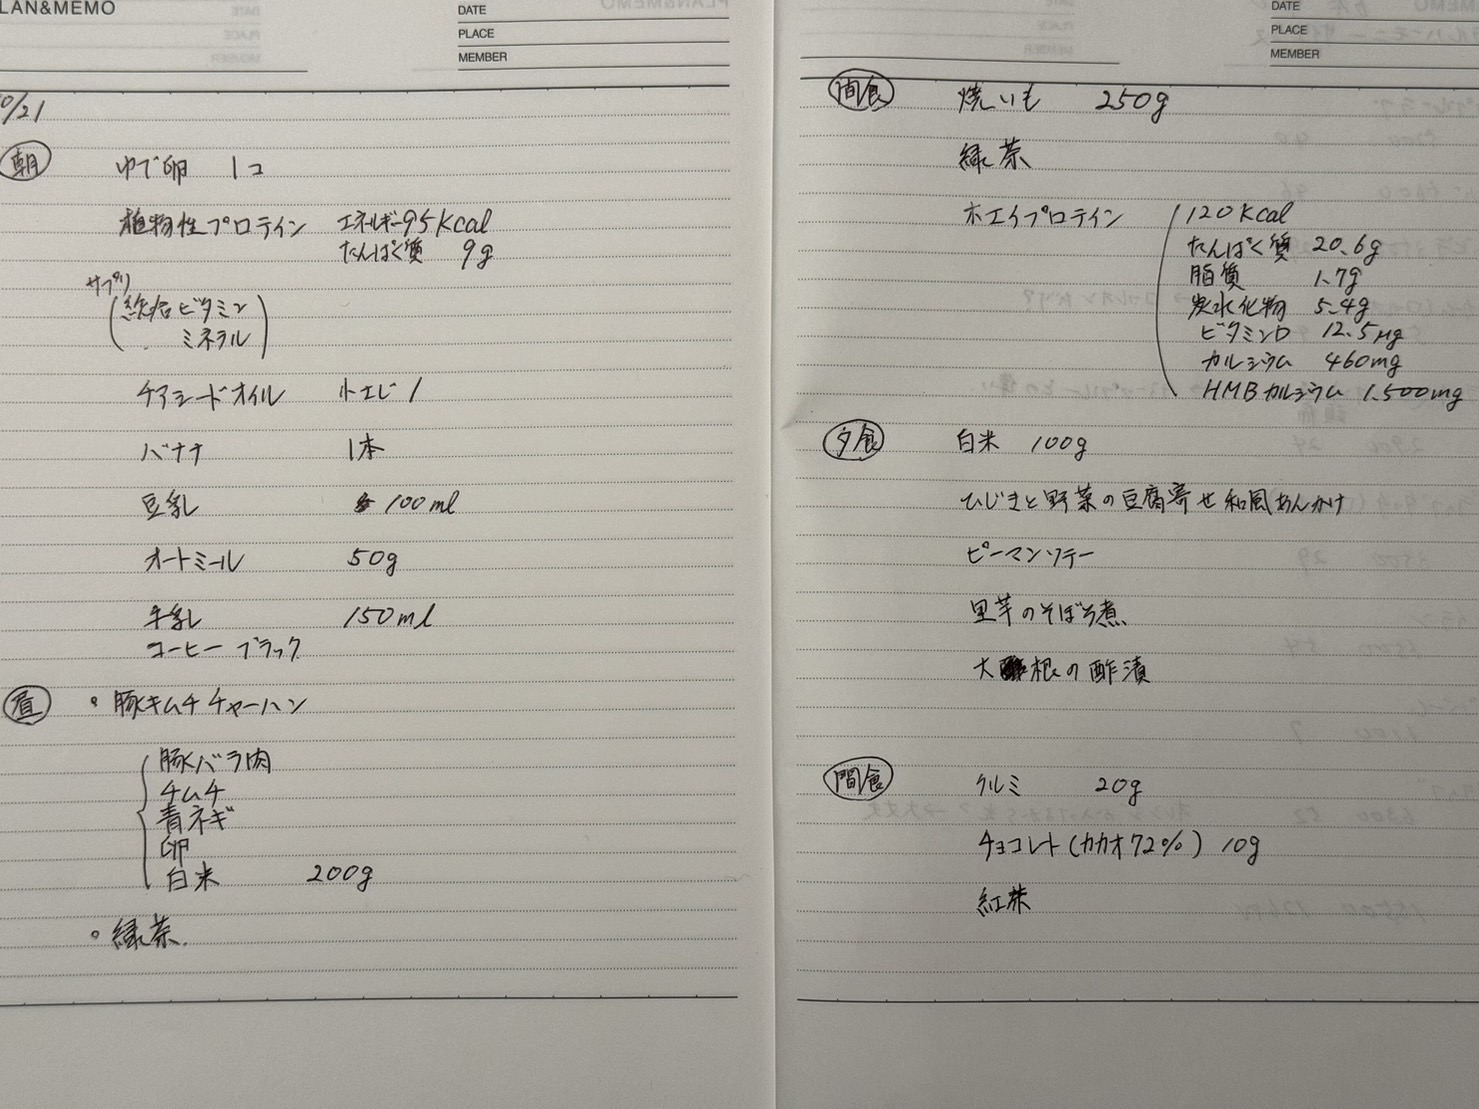 LAN&MEMO
DATE
PLACE
MEMBER
0/21
朝
ゆで卵 1コ
植物性プロテイン エネルギー95kcal
たんぱく質 9g
サプリ
(総合ビタミン
ミネラル)
チアシードオイル 小さじ1
バナナ 1本
豆乳 100ml
オートミール 50g
牛乳 150ml
コーヒー ブラック
昼 ・豚キムチチャーハン
豚バラ肉
キムチ
青ネギ
卵
白米 200g
・緑茶
DATE
PLACE
MEMBER
間食 焼いも 250g
緑茶
ホエイプロテイン 120kcal
たんぱく質 20.6g
脂質 1.7g
炭水化物 5.4g
ビタミンD 12.5μg
カルシウム 460mg
HMBカルシウム 1.500mg
夕食 白米 100g
ひじきと野菜の豆腐寄せ和風あんかけ
ピーマンソテー
里芋のそぼろ煮
大根の酢漬
間食 クルミ 20g
チョコレート(カカオ72%) 10g
紅茶